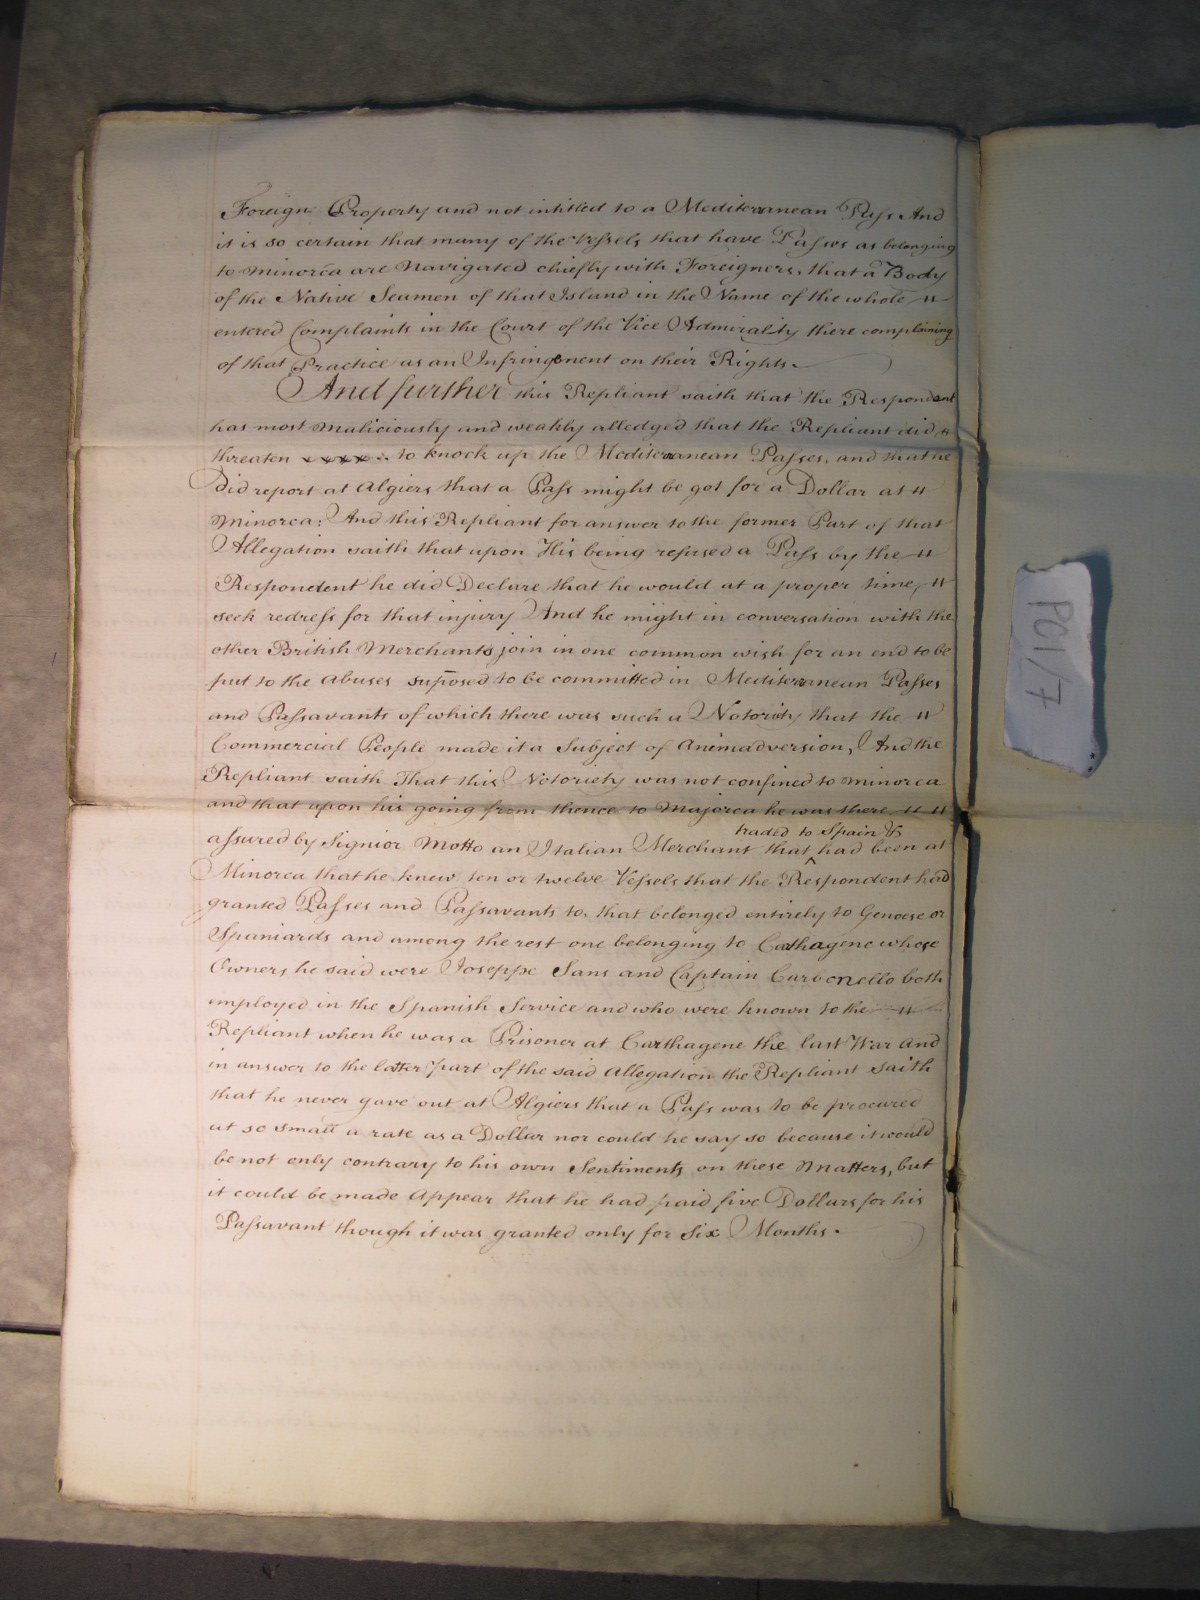 Foreign Property and not intitled to a Mediterranean Pass And
it is so certain that many of the Vessels that have Passes as belonging
to Minorca are Navigated chiefly with Foreigners, that a Body
of the Native Seamen of that Island in the Name of the whole
entered Complaints in the Court of the Vice Admiralty there complaining
of that Practice as an Infringement on their Rights.
And further this Repliant saith that the Respondent
has most Maliciously and weakly alledged that the Repliant did
threaten to knock up the Mediterranean Passes, and that he
did report at Algiers that a Pass might be got for a Dollar at
Minorca: And this Repliant for answer to the former Part of that
Allegation saith that upon His being refused a Pass by the
Respondent he did Declare that he would at a proper time,
seek redress for that injury And he might in conversation with the
other British Merchants join in one common wish for an end to be
put to the Abuses suposed to be committed in Mediterranean Passes
and Passavants of which there was such a Notority that the
Commercial People made it a Subject of Animadversion, And the
Repliant saith That this Notoriety was not confined to Minorca
and that upon his going from thence to Majorca he was there
traded to Spain &
assured by Signior Motto an Italian Merchant that had been at
Minorca that he knew ten or twelve Vessels that the Respondent had
granted Passes and Passavants to, that belonged entirely to Genoese or
Spaniards and among the rest one belonging to Cathagene whose
Owners he said were Joseppe Sans and Captain Carbonello both
employed in the Spanish Service and who were known to the
Repliant when he was a Prisoner at Carthagene the last War And
in answer to the latter part of the said Allegation the Repliant saith
that he never gave out at Algiers that a Pass was to be procured
at so small a rate as a Dollar nor could he say so because it would
be not only contrary to his own Sentiments on these Matters, but
it could be made Appear that he had paid five Dollars for his
Passavant though it was granted only for Six Months.
PC1/7